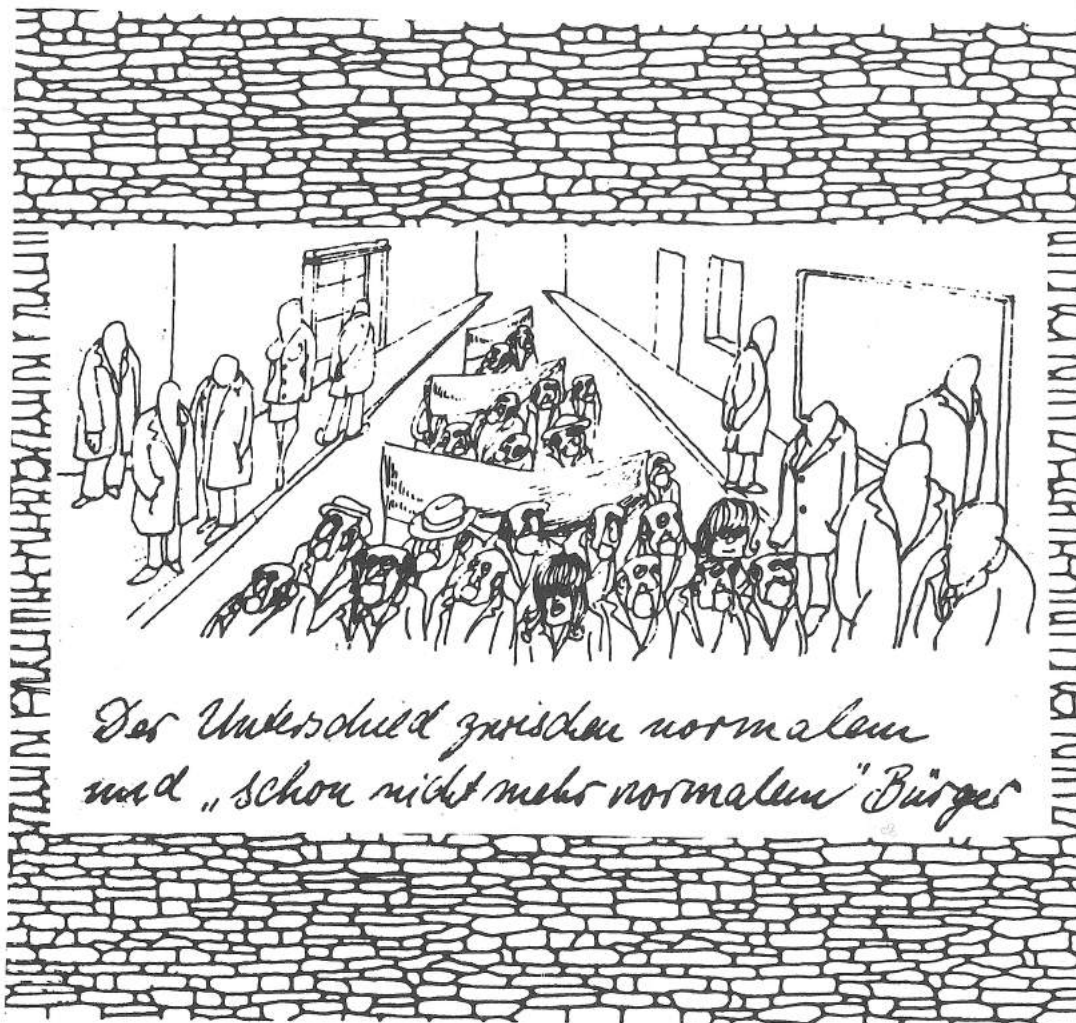 Der Unterschied zwischen normalem
und „schon nicht mehr normalem" Bürger